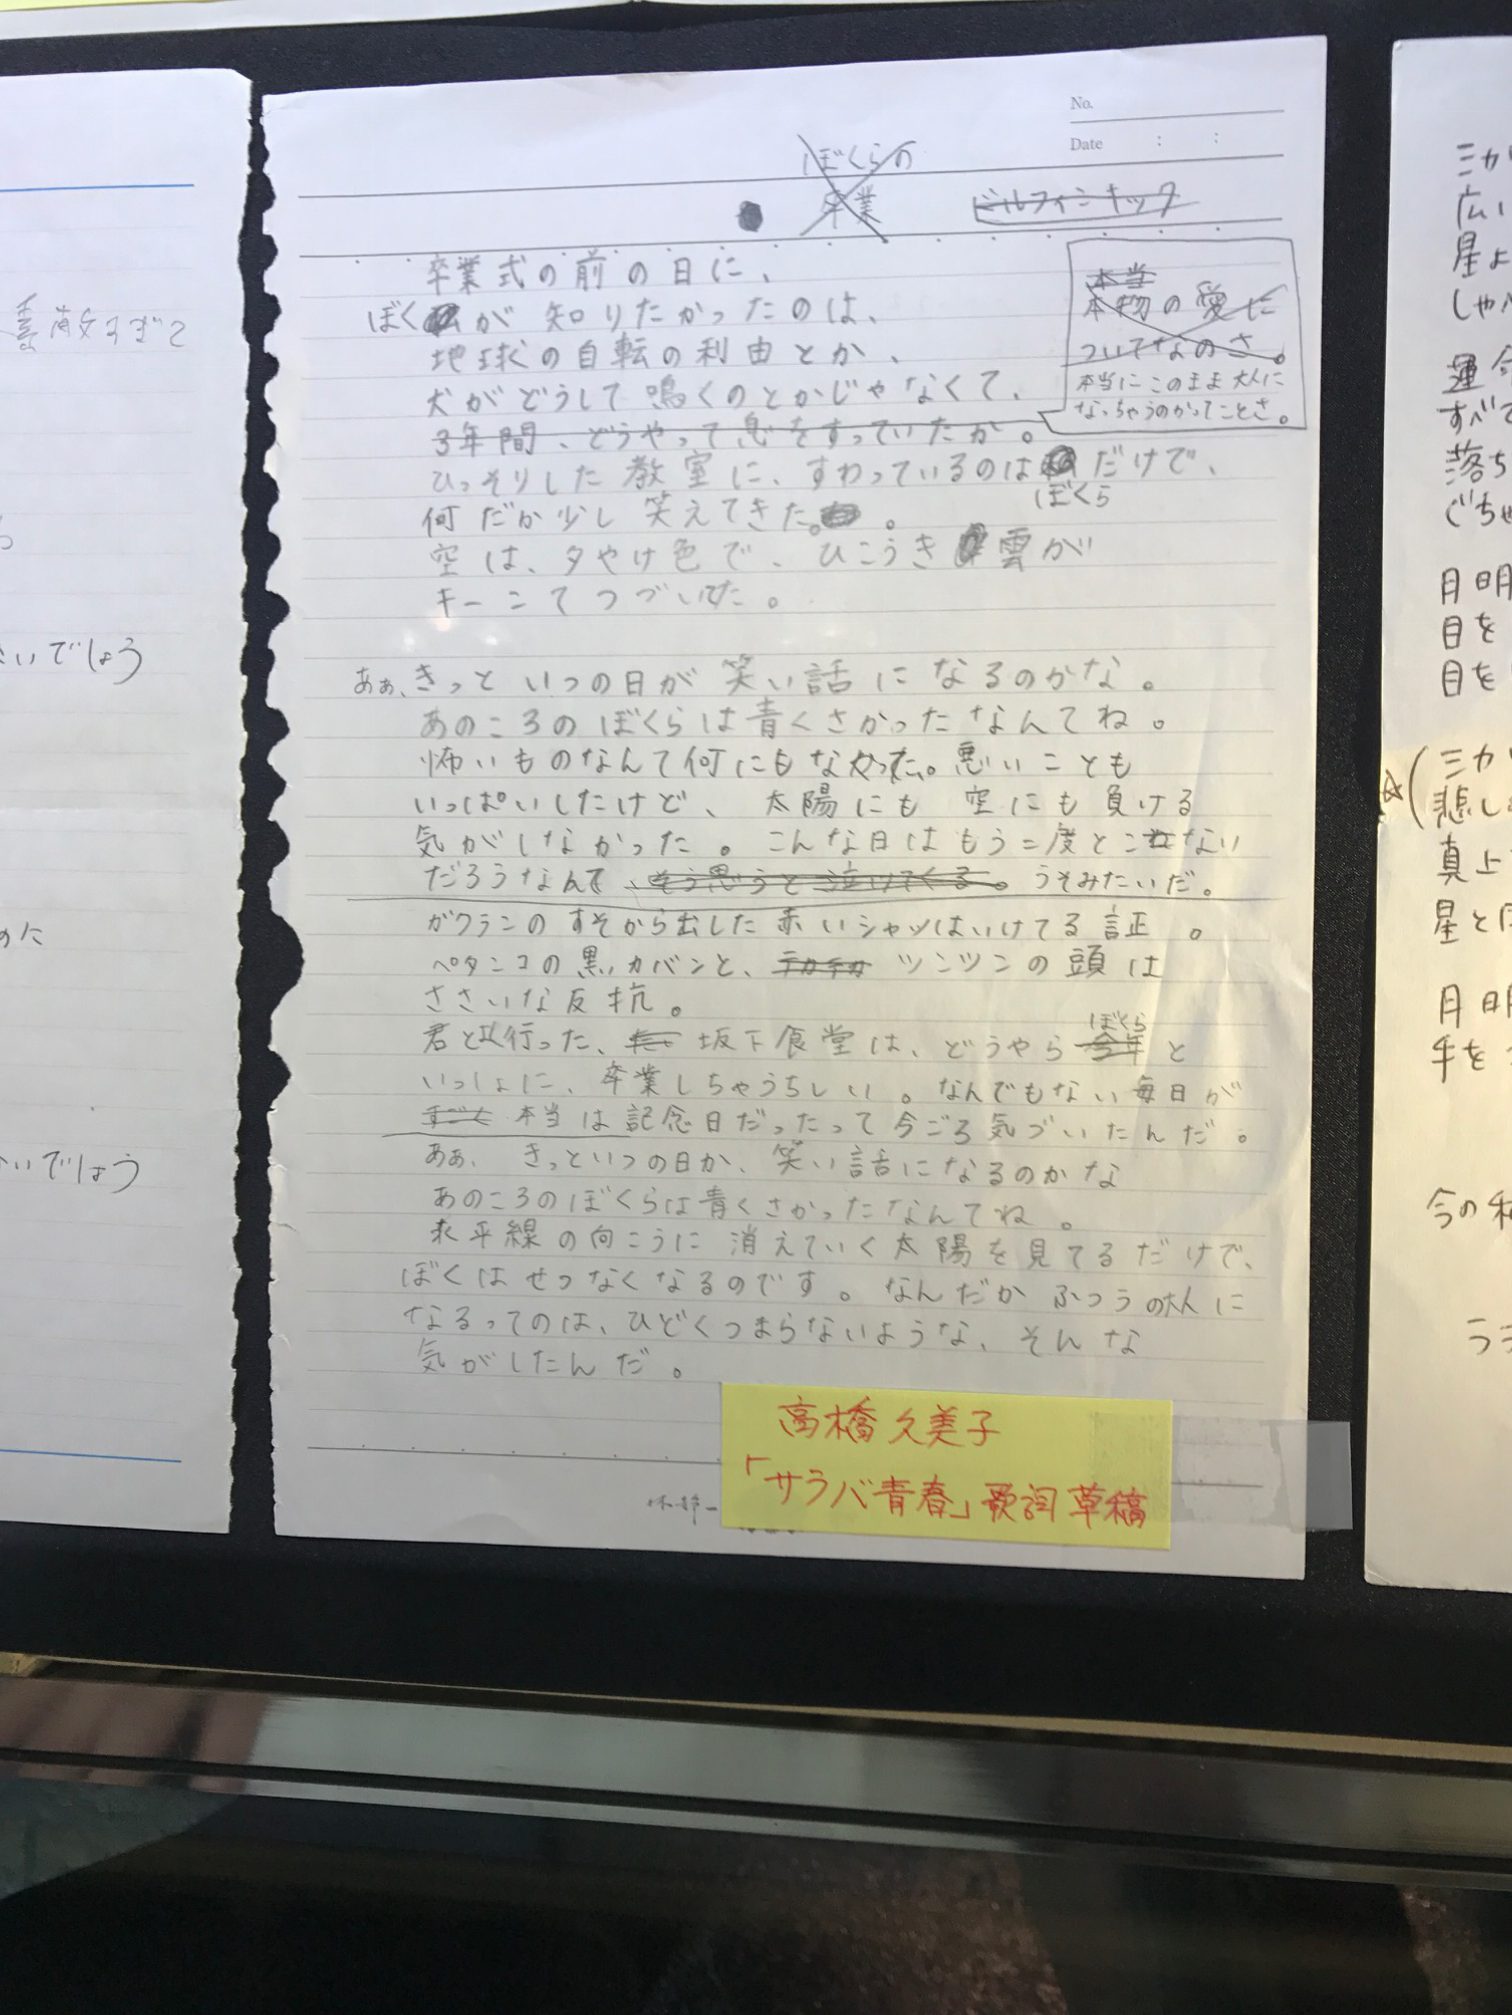 No.
Date : :
ぼくらの
卒業
ドルフィンキック
卒業式の前の日に、
ぼくが 知りたかったのは、
地球の自転の利由とか、
犬がどうして鳴くのとかじゃなくて、
3年間、どうやって息をすっていたか。
本当
本物の愛に
ついてなのさ。
本当にこのまま大人に
なっちゃうのかってことさ。
ひっそりした教室に、すわっているのは だけで、
ぼくら
何だか少し笑えてきた。
空は、夕やけ色で、ひこうき雲が
キーンてつづいてた。
あぁ、きっといつの日が笑い話になるのかな。
あのころのぼくらは青くさかったなんてね。
怖いものなんて何にもなかった。悪いことも
いっぱいしたけど、太陽にも空にも負ける
気がしなかった。こんな日はもう二度とこない
だろうなんて、そう思うと泣けてくる。うそみたいだ。
ガクランのすそから出した赤いシャツはいけてる証。
ペタンコの黒いカバンと、テカテカ ツンツンの頭は
ささいな反抗。
君と行った、 坂下食堂は、どうやら 今年 と
ぼくら
いっしょに、卒業しちゃうらしい。なんでもない毎日が
すごく 本当は記念日だったって今ごろ気づいたんだ。
あぁ、きっといつの日か、笑い話になるのかな
あのころのぼくらは青くさかったなんてね。
水平線の向こうに消えていく太陽を見てるだけで、
ぼくはせつなくなるのです。なんだかふつうの大人に
なるってのは、ひどくつまらないような、そんな
気がしたんだ。
高橋久美子
「サラバ青春」歌詞草稿
いでしょう
いでしょう
三カ
広い
星よ
しゃべ
運命
すべて
落ち
ぐちゃ
月明
目を
目を
☆(三カ
悲し
真上
星と
月明
手を
今の私
ララ